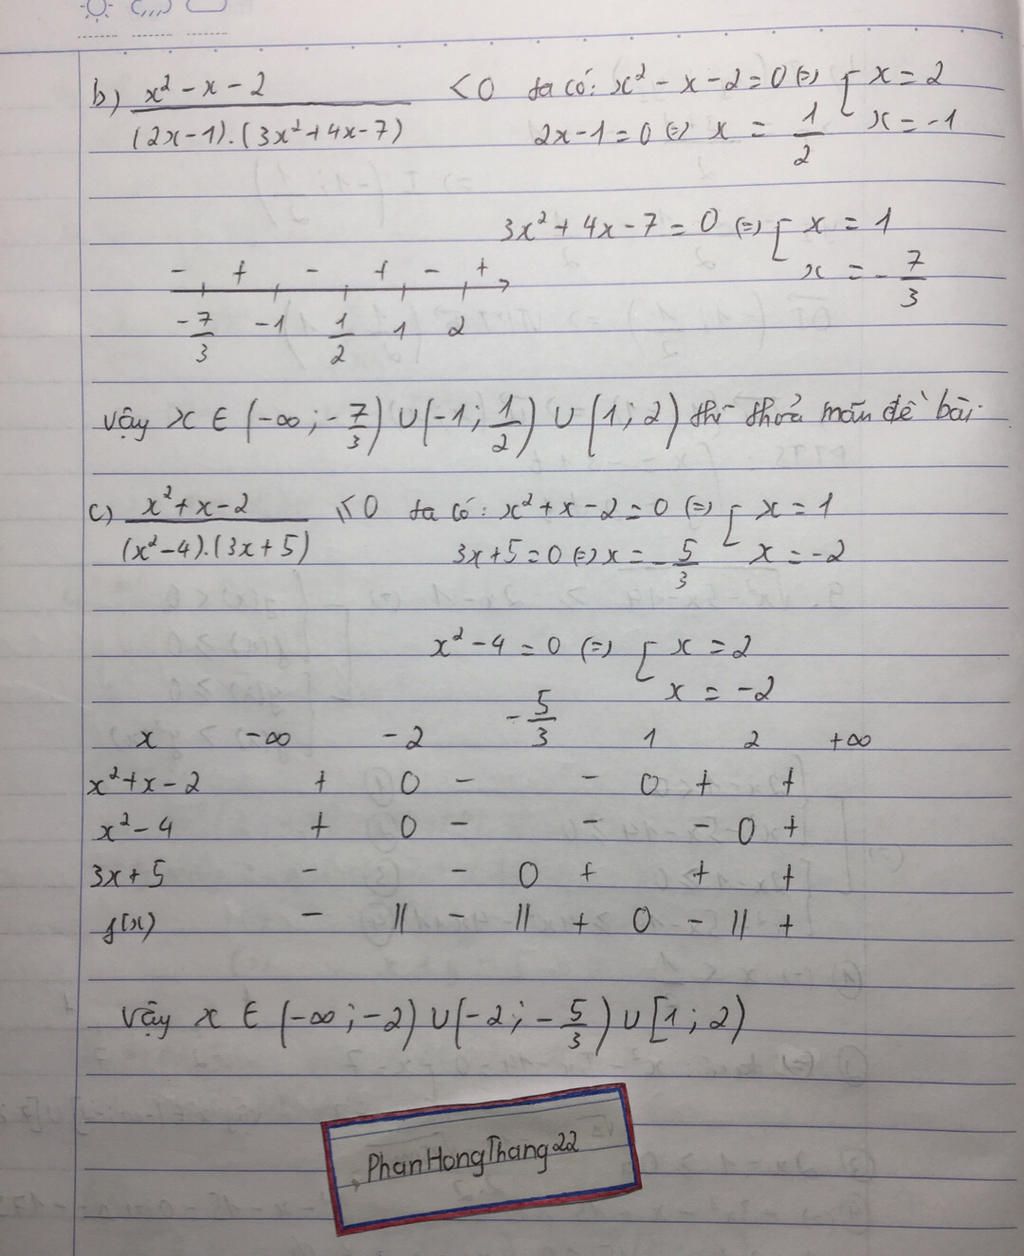 b) (x² - x - 2)/((2x-1).(3x²+4x-7)) < 0 ta có: x² - x - 2 = 0 (=) [ x = 2
x = -1
2x-1 = 0 (=) x = 1/2
3x² + 4x - 7 = 0 (=) [ x = 1
x = -7/3
- + - + - +
-7/3 -1 1/2 1 2
Vậy x ∈ (-∞; -7/3) ∪ (-1; 1/2) ∪ (1; 2) thì thoả mãn đề bài.
c) (x² + x - 2)/((x²-4).(3x+5)) ≤ 0 ta có: x² + x - 2 = 0 (=) [ x = 1
x = -2
3x+5 = 0 (=) x = -5/3
x² - 4 = 0 (=) [ x = 2
x = -2
x -∞ -2 -5/3 1 2 +∞
x²+x-2 + 0 - - 0 + +
x²-4 + 0 - - - 0 +
3x+5 - - 0 + + +
f(x) - || - || + 0 - || +
Vậy x ∈ (-∞; -2) ∪ (-2; -5/3) ∪ [1; 2)
PhanHongThang22